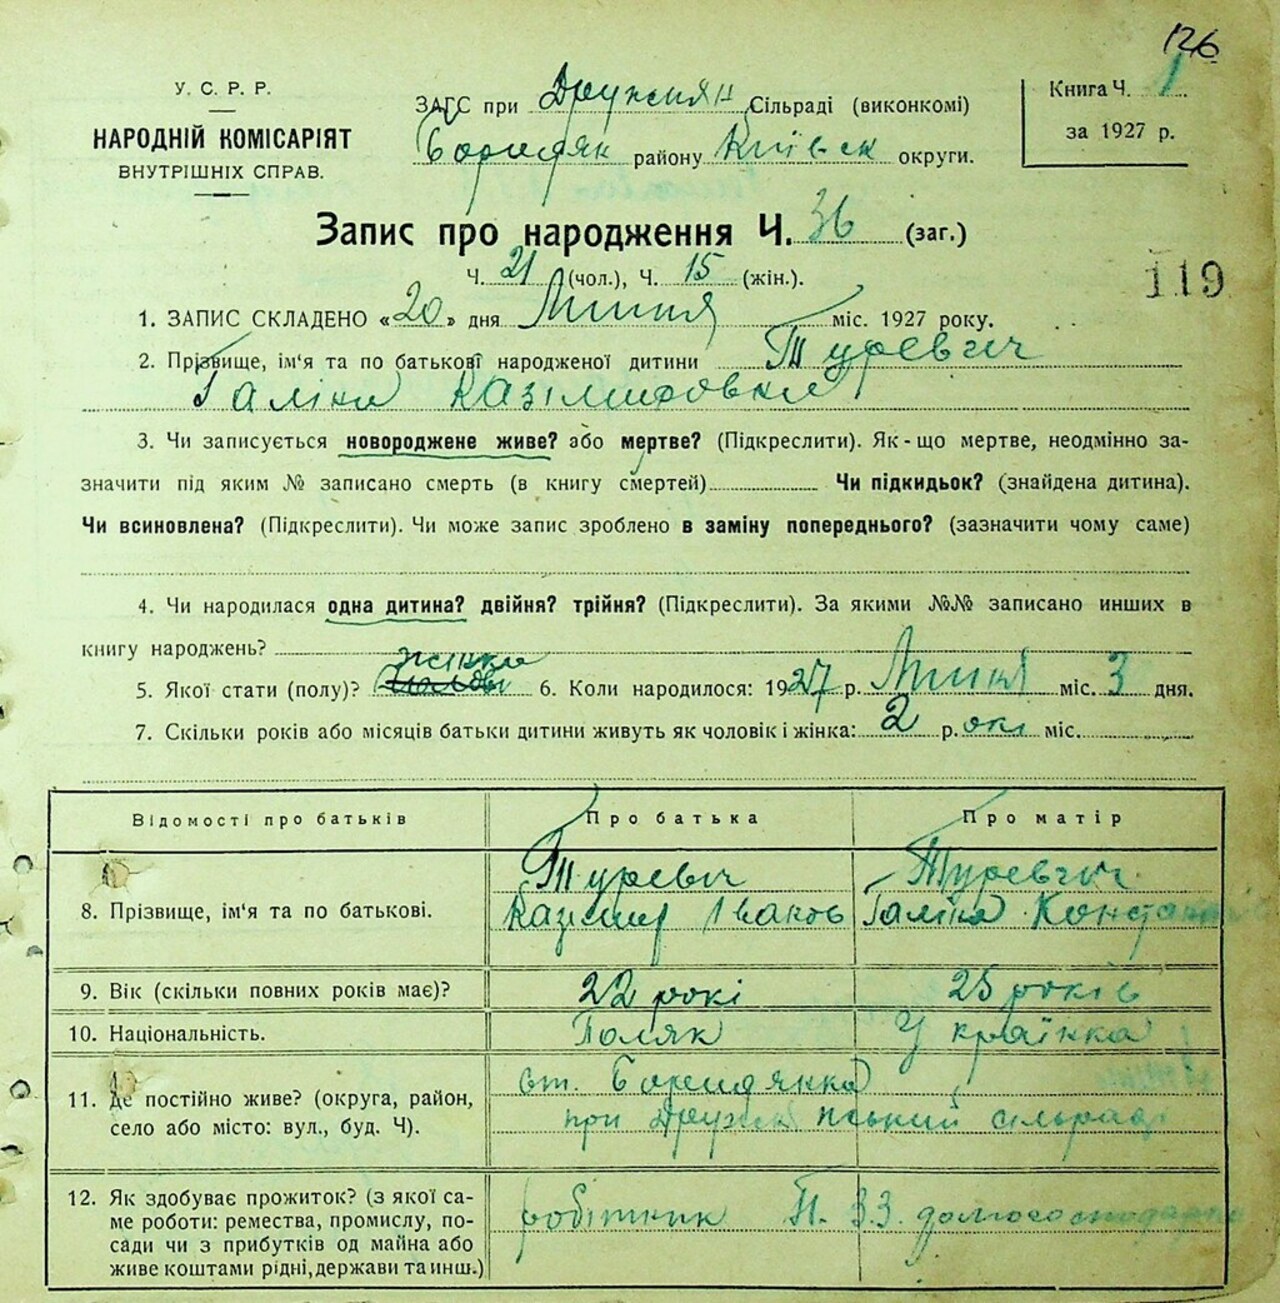 126
У. С. Р. Р.
НАРОДНІЙ КОМІСАРІЯТ
ВНУТРІШНІХ СПРАВ.
ЗАГС при Дружнян Сільраді (виконкомі)
Бородяк району Київск округи.
Книга Ч. 1
за 1927 р.
Запис про народження Ч. 36 (заг.)
Ч. 21 (чол.), Ч. 15 (жін.).
119
1. ЗАПИС СКЛАДЕНО «20» дня Липня міс. 1927 року.
2. Прізвище, ім'я та по батькові народженої дитини Туревич
Галіна Казімировна
3. Чи записується новороджене живе? або мертве? (Підкреслити). Як-що мертве, неодмінно за-
значити під яким № записано смерть (в книгу смертей) Чи підкидьок? (знайдена дитина).
Чи всиновлена? (Підкреслити). Чи може запис зроблено в заміну попереднього? (зазначити чому саме)
4. Чи народилася одна дитина? двійня? трійня? (Підкреслити). За якими №№ записано инших в
книгу народжень?
5. Якої стати (полу)? жінка 6. Коли народилося: 1927 р. Липня міс. 3 дня.
7. Скільки років або місяців батьки дитини живуть як чоловік і жінка: 2 р. окі міс.
Відомості про батьків Про батька Про матір
8. Прізвище, ім'я та по батькові. Туревич Казімир Іванов Туревич Галіна
9. Вік (скільки повних років має)? 22 рокі 25 років
10. Національність. Поляк Українка
11. Де постійно живе? (округа, район,
село або місто: вул., буд. Ч). ст. Бородянка
при Дружнянський сільраді
12. Як здобуває прожиток? (з якої са-
ме роботи: ремества, промислу, по-
сади чи з прибутків од майна або
живе коштами рідні, держави та инш.) робітник П. З.З.